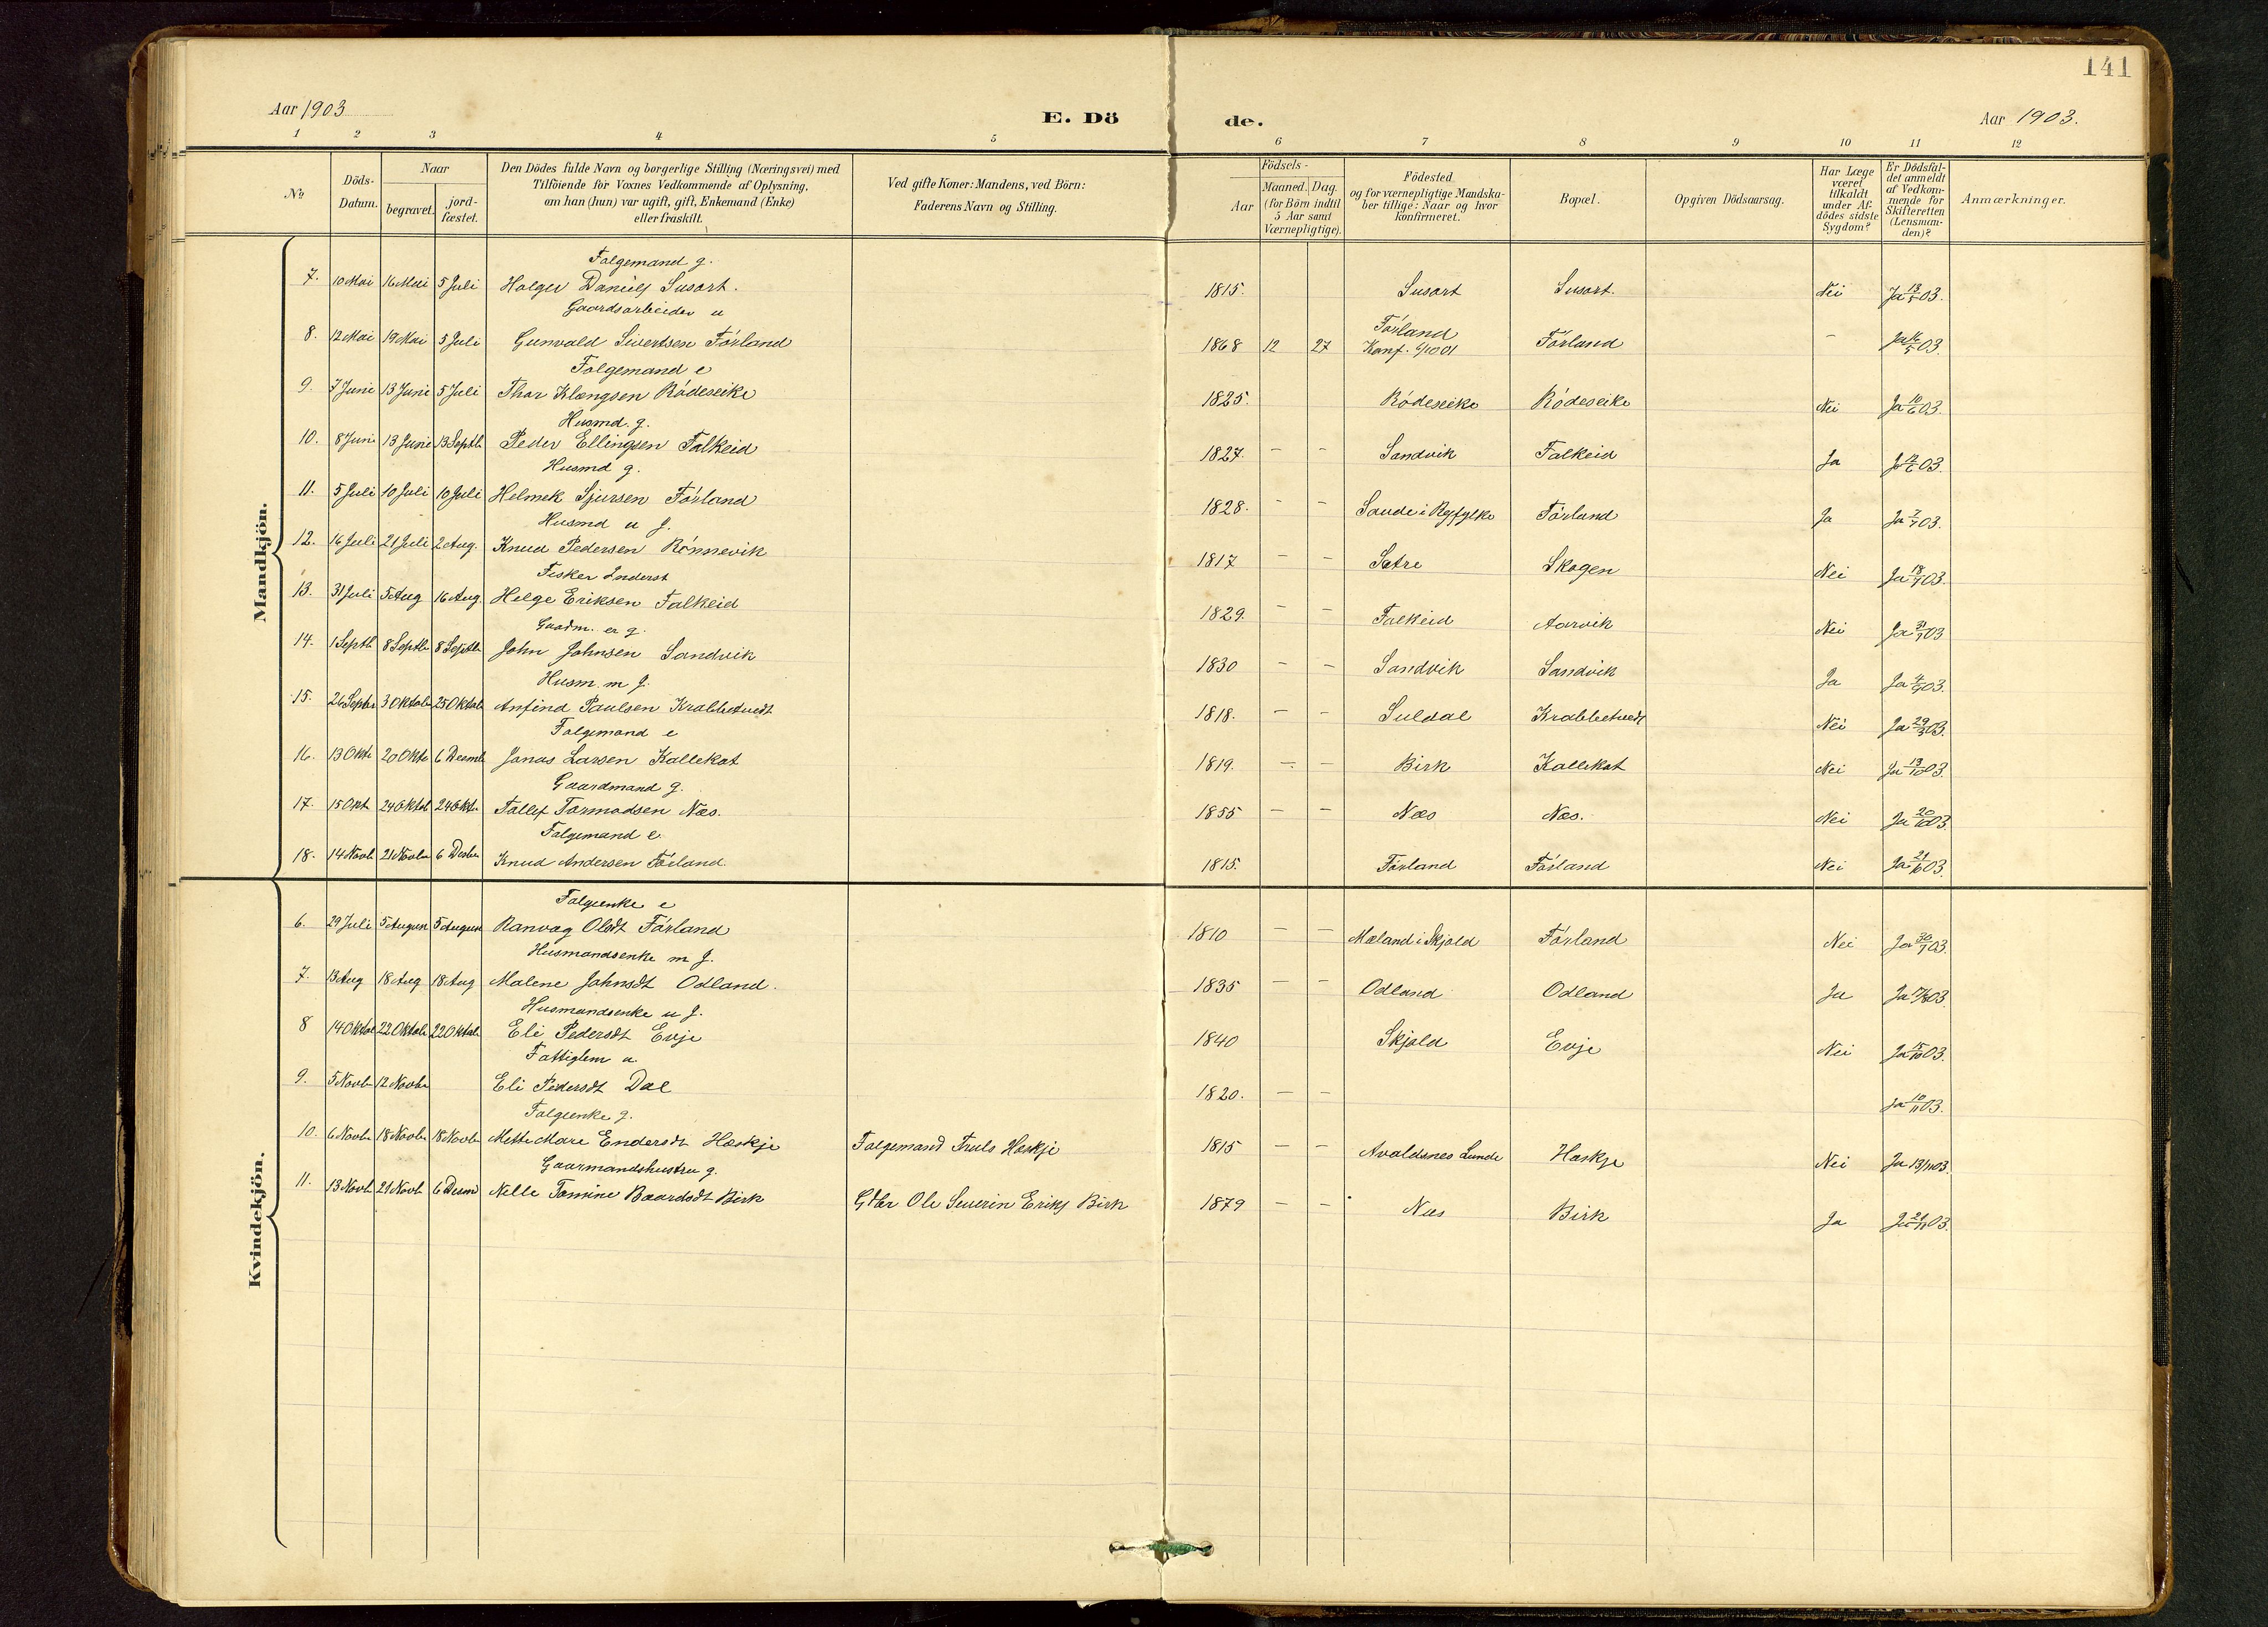 141
Aar 1903
E. Dö
de.
Aar 1903.
1 2 3 4 5 6 7 8 9 10 11 12
No
Döds-Datum.
Naar
begravet.
jord-fæstet.
Den Dödes fulde Navn og borgerlige Stilling (Næringsvei) med
Tilföiende for Voxnes Vedkommende af Oplysning,
om han (hun) var ugift, gift, Enkemand (Enke)
eller fraskilt.
Ved gifte Koner: Mandens, ved Börn:
Faderens Navn og Stilling.
Födsels-
Aar
Maaned. Dag.
(for Börn indtil
5 Aar samt
Værnepligtige).
Födested
og for værnepligtige Mandska-
ber tillige: Naar og hvor
konfirmeret.
Bopæl.
Opgiven Dödsaarsag.
Har Læge
været
tilkaldt
under Af-
dödes sidste
Sygdom?
Er Dödsfal-
det anmeldt
af Vedkom-
mende for
Skifteretten
(Lensman-
den)?
Anmærkninger.
Mandkjön.
Folgemand g.
7. 10 Mai 16 Mai 5 Juli Holger Daniels Susort. 1815. Susort Susort. Nei Ja 13/5 03.
Gaardsarbeider u
8. 12 Mai 19 Mai 5 Juli Gunvald Sivertsen Førland 1868 12 27 Førland Konf. Førland - Ja 03.
Folgemand e
9. 7 Juni 13 Juni 5 Juli Thor Klængsen Rødeseike 1825. Rødeseike Rødeseike Nei Ja 10/6 03.
Husmd. g.
10. 8 Juni 13 Juni 13 Septb Peder Ellingsen Falkeid 1827. - - Sandvik Falkeid Ja Ja 12/6 03.
Husmd g.
11. 5 Juli 10 Juli 10 Juli Helmek Sjursen Førland 1828. - - Saude i Ryfylke Førland Ja Ja 7/7 03.
Husmd u J.
12. 16 Juli 21 Juli 2 Aug. Knud Pedersen Rønnevik 1817 - - Sætre Skogen Nei Ja 18/7 03.
Fisker Inderst
13. 31 Juli 5 Aug 16 Aug. Helge Eriksen Falkeid 1829. - - Falkeid Aarvik Nei Ja 31/7 03
Gaardm. er g.
14. 1 Septb 8 Septb 8 Septb John Johnsen Sandvik 1830 - - Sandvik Sandvik Ja Ja 4/9 03.
Husm. m J.
15. 26 Septbr 3 Oktob 25 Oktob Anfind Paulsen Krabbetvedt 1818. - - Suldal Krabbetvedt Nei Ja 29/9 03.
Folgemand e
16. 13 Oktb 20 Oktb 6 Decmb Jonas Larsen Kallekot 1819. - - Birk Kallekot Nei Ja 19/10 03.
Gaardmand g.
17. 15 Okt 24 Oktob 24 Okt. Tollef Tormodsen Næs. 1855 - - Næs Næs. Nei Ja 20/10 03.
Folgemand e
18. 14 Novb 21 Novbr 6 Decbr Knud Andersen Førland. 1815. Førland Førland Nei Ja 03.
Kvindekjön.
Folgeenke e
6. 29 Juli 5 August 5 August Ranvag Olsdt Førland 1810 - - Mæland i Skjold Førland Nei Ja 30/7 03.
Husmandsenke m J.
7. 13 Aug 18 Aug 18 Aug Malene Johnsdt Odland. 1835 - - Odland Odland Ja Ja 17/8 03.
Husmandsenke u J.
8 14 Oktob 22 Oktob 22 Oktob Eli Pedersdt Evje 1840 Skjold Evje Nei Ja 15/10 03.
Fattiglem u.
9. 5 Novb 12 Novbr Eli Pedersdt Dal 1820. - - Ja 10/11 03.
Folgeenke g.
10. 6 Novb 18 Novb 18 Novb Mette Mare Endersdt Hæskje Folgemand Truls Hæskje 1815 - - Avaldsnes Lunde Hæskje Nei Ja 13/11 03.
Gaarmandshustru g.
11. 13 Novb 21 Novb 6 Decm Nelle Tomine Baardsdt Birk Gdbr Ole Severin Eriks Birk 1879 - - Næs Birk Ja Ja 21/11 03.